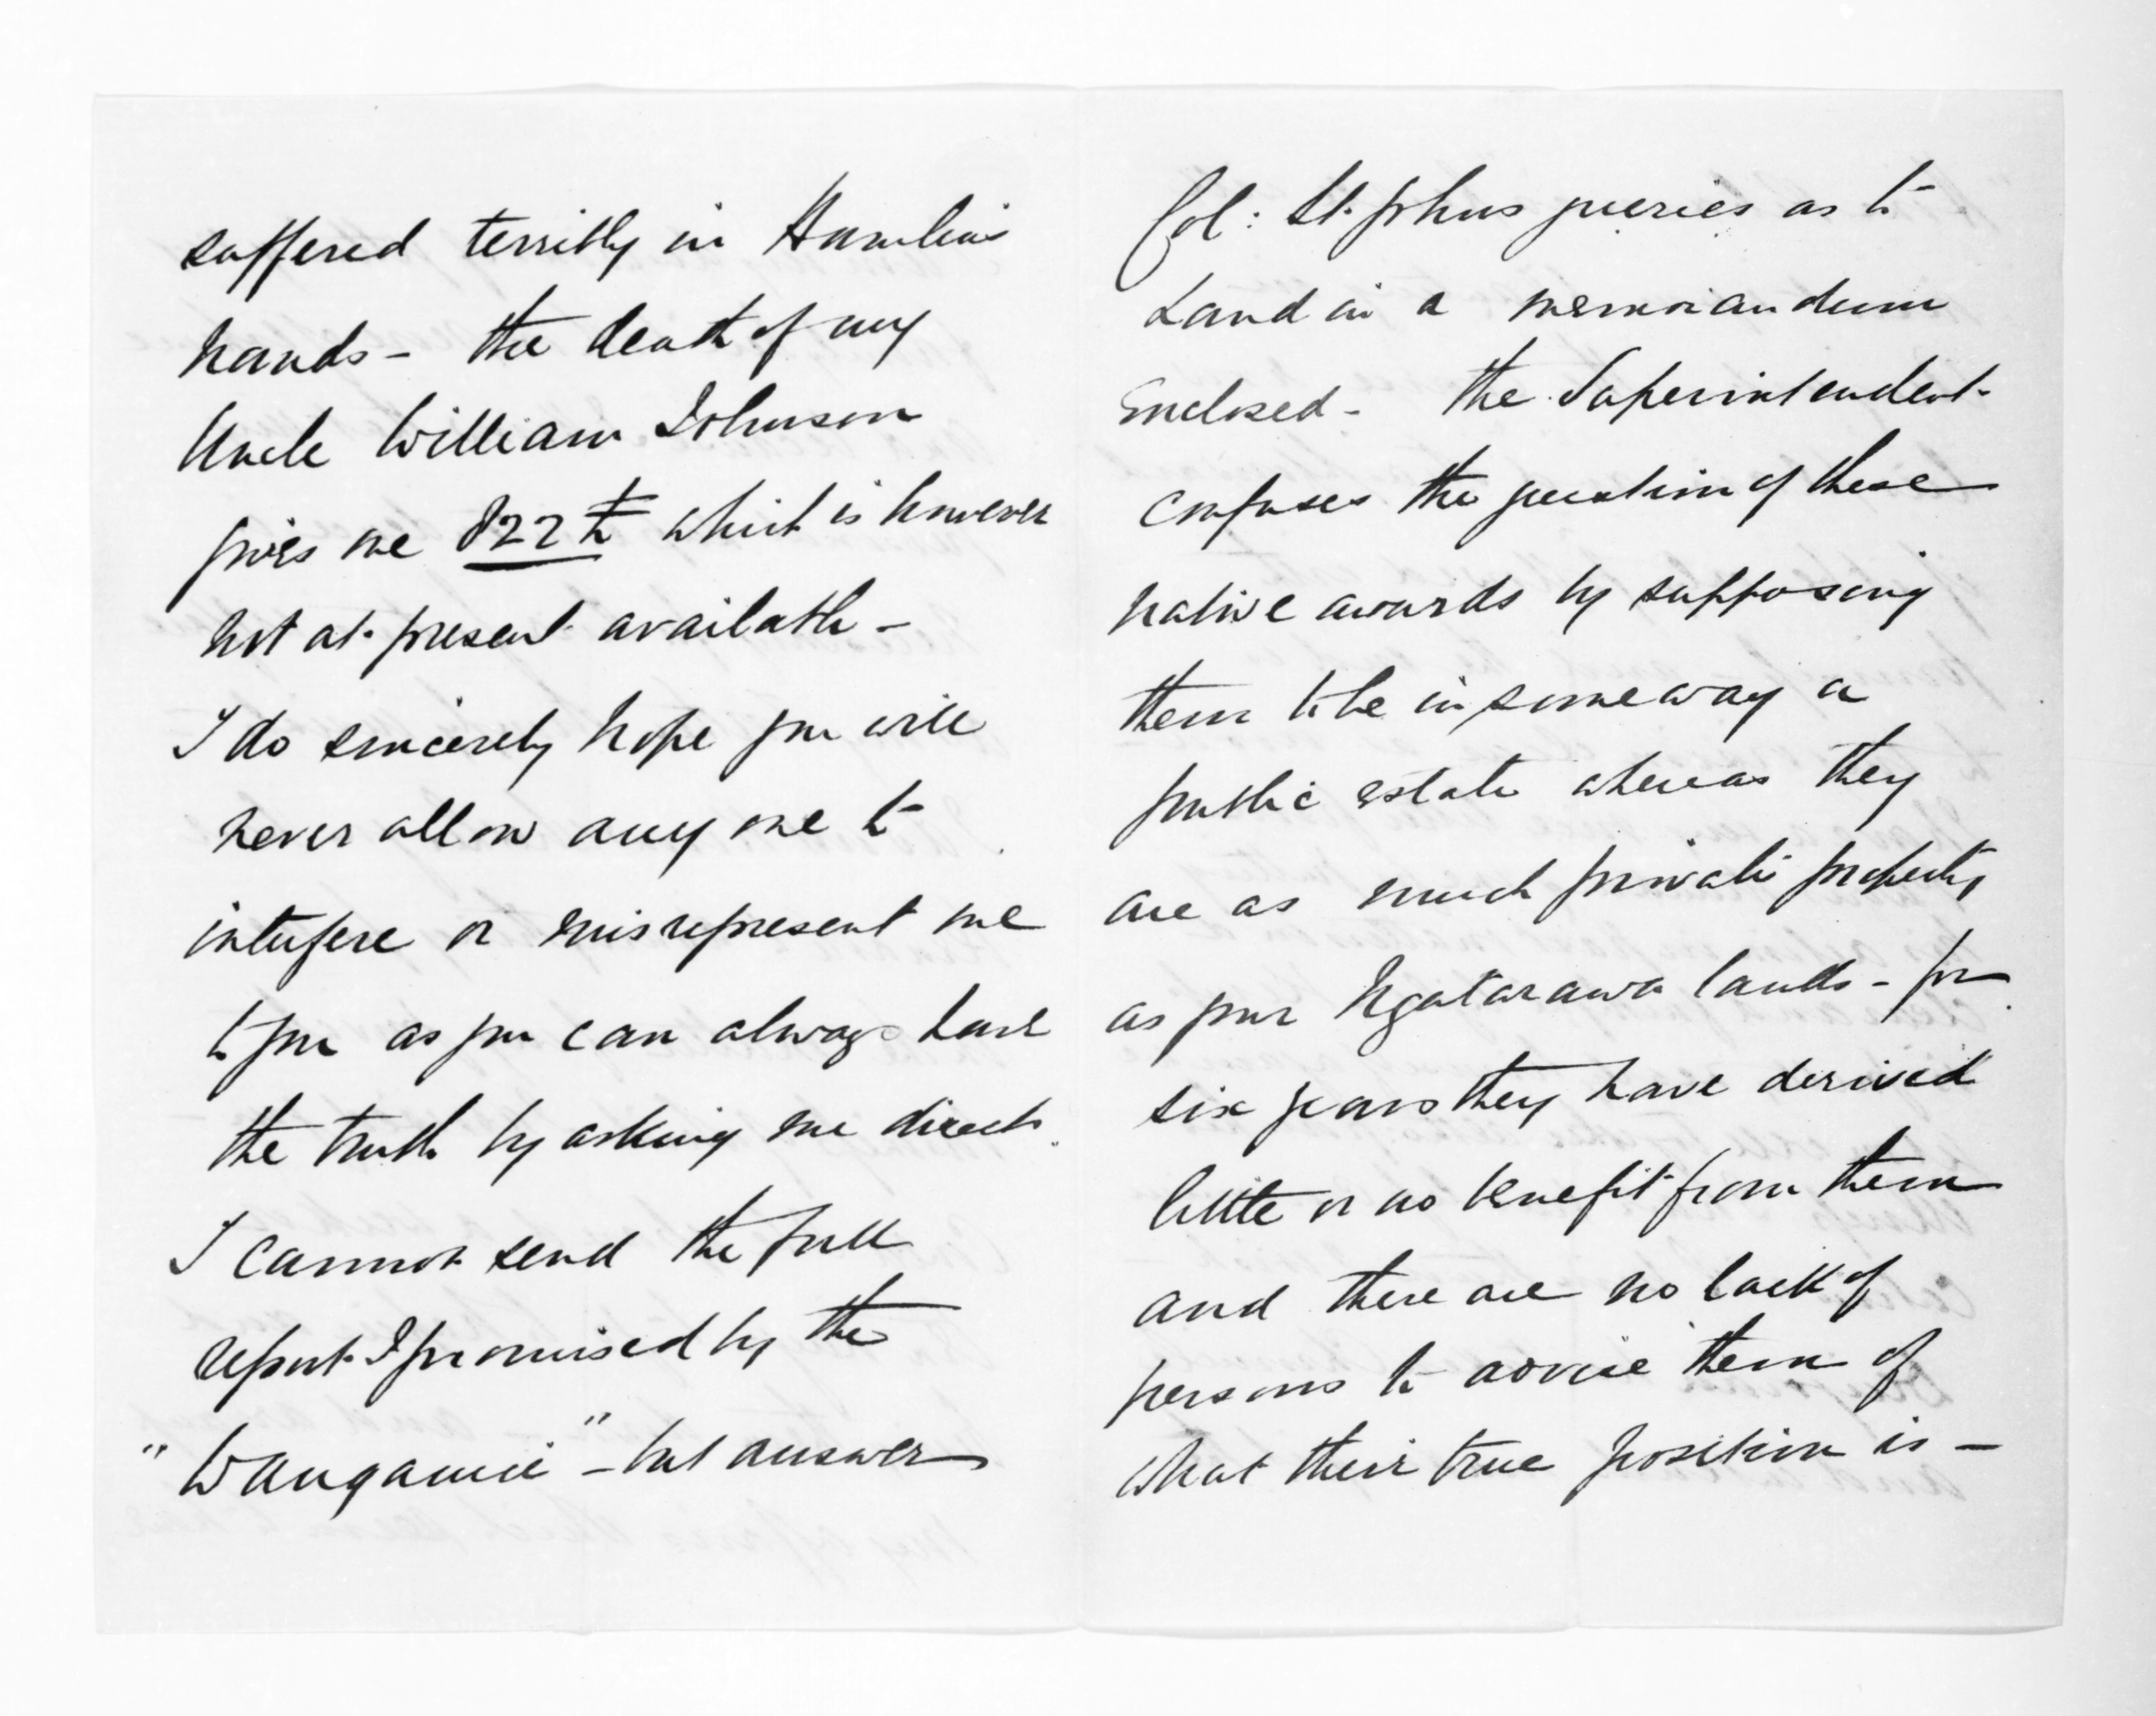 suffered terribly in Hamlin's
hands - the death of my
Uncle William Johnson
gives me 822 £ which is however
not at present available -
I do sincerely hope you will
never allow any one to
interfere or misrepresent me
to you as you can always have
the truth by asking me direct.
I cannot send the full
report I promised by the
"Wanganui" - but answer
Col: St. Johns queries as to
Land in a memorandum
enclosed - the Superintendent
confuses the question of these
native awards by supposing
them to be in some way a
public estate whereas they
are as much private property
as your Ngatarawa lands - for
six years they have derived
little or no benefit from them
and there are no lack of
persons to advise them of
what their true position is -